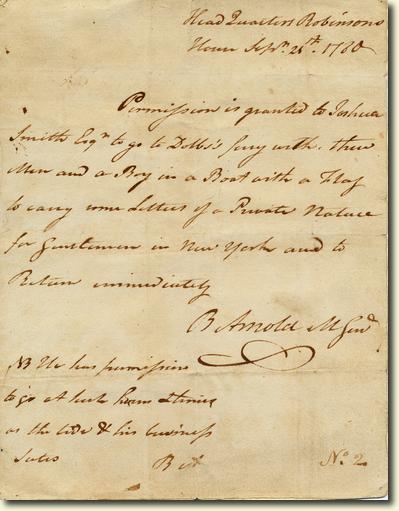 Head Quarters Robinsons
House Sepr. 20th. 1780
Permission is granted to Joshua
Smith Esqr. to go to Dobbs's ferry with three
Men and a Boy in a Boat with a Flag
to carry some Letters of a Private Nature
for Gentlemen in New York and to
Return immediately
B Arnold M Genl
NB He has permission
to go at such hours & times
as the tide & his business
Suits
B A
No. 2